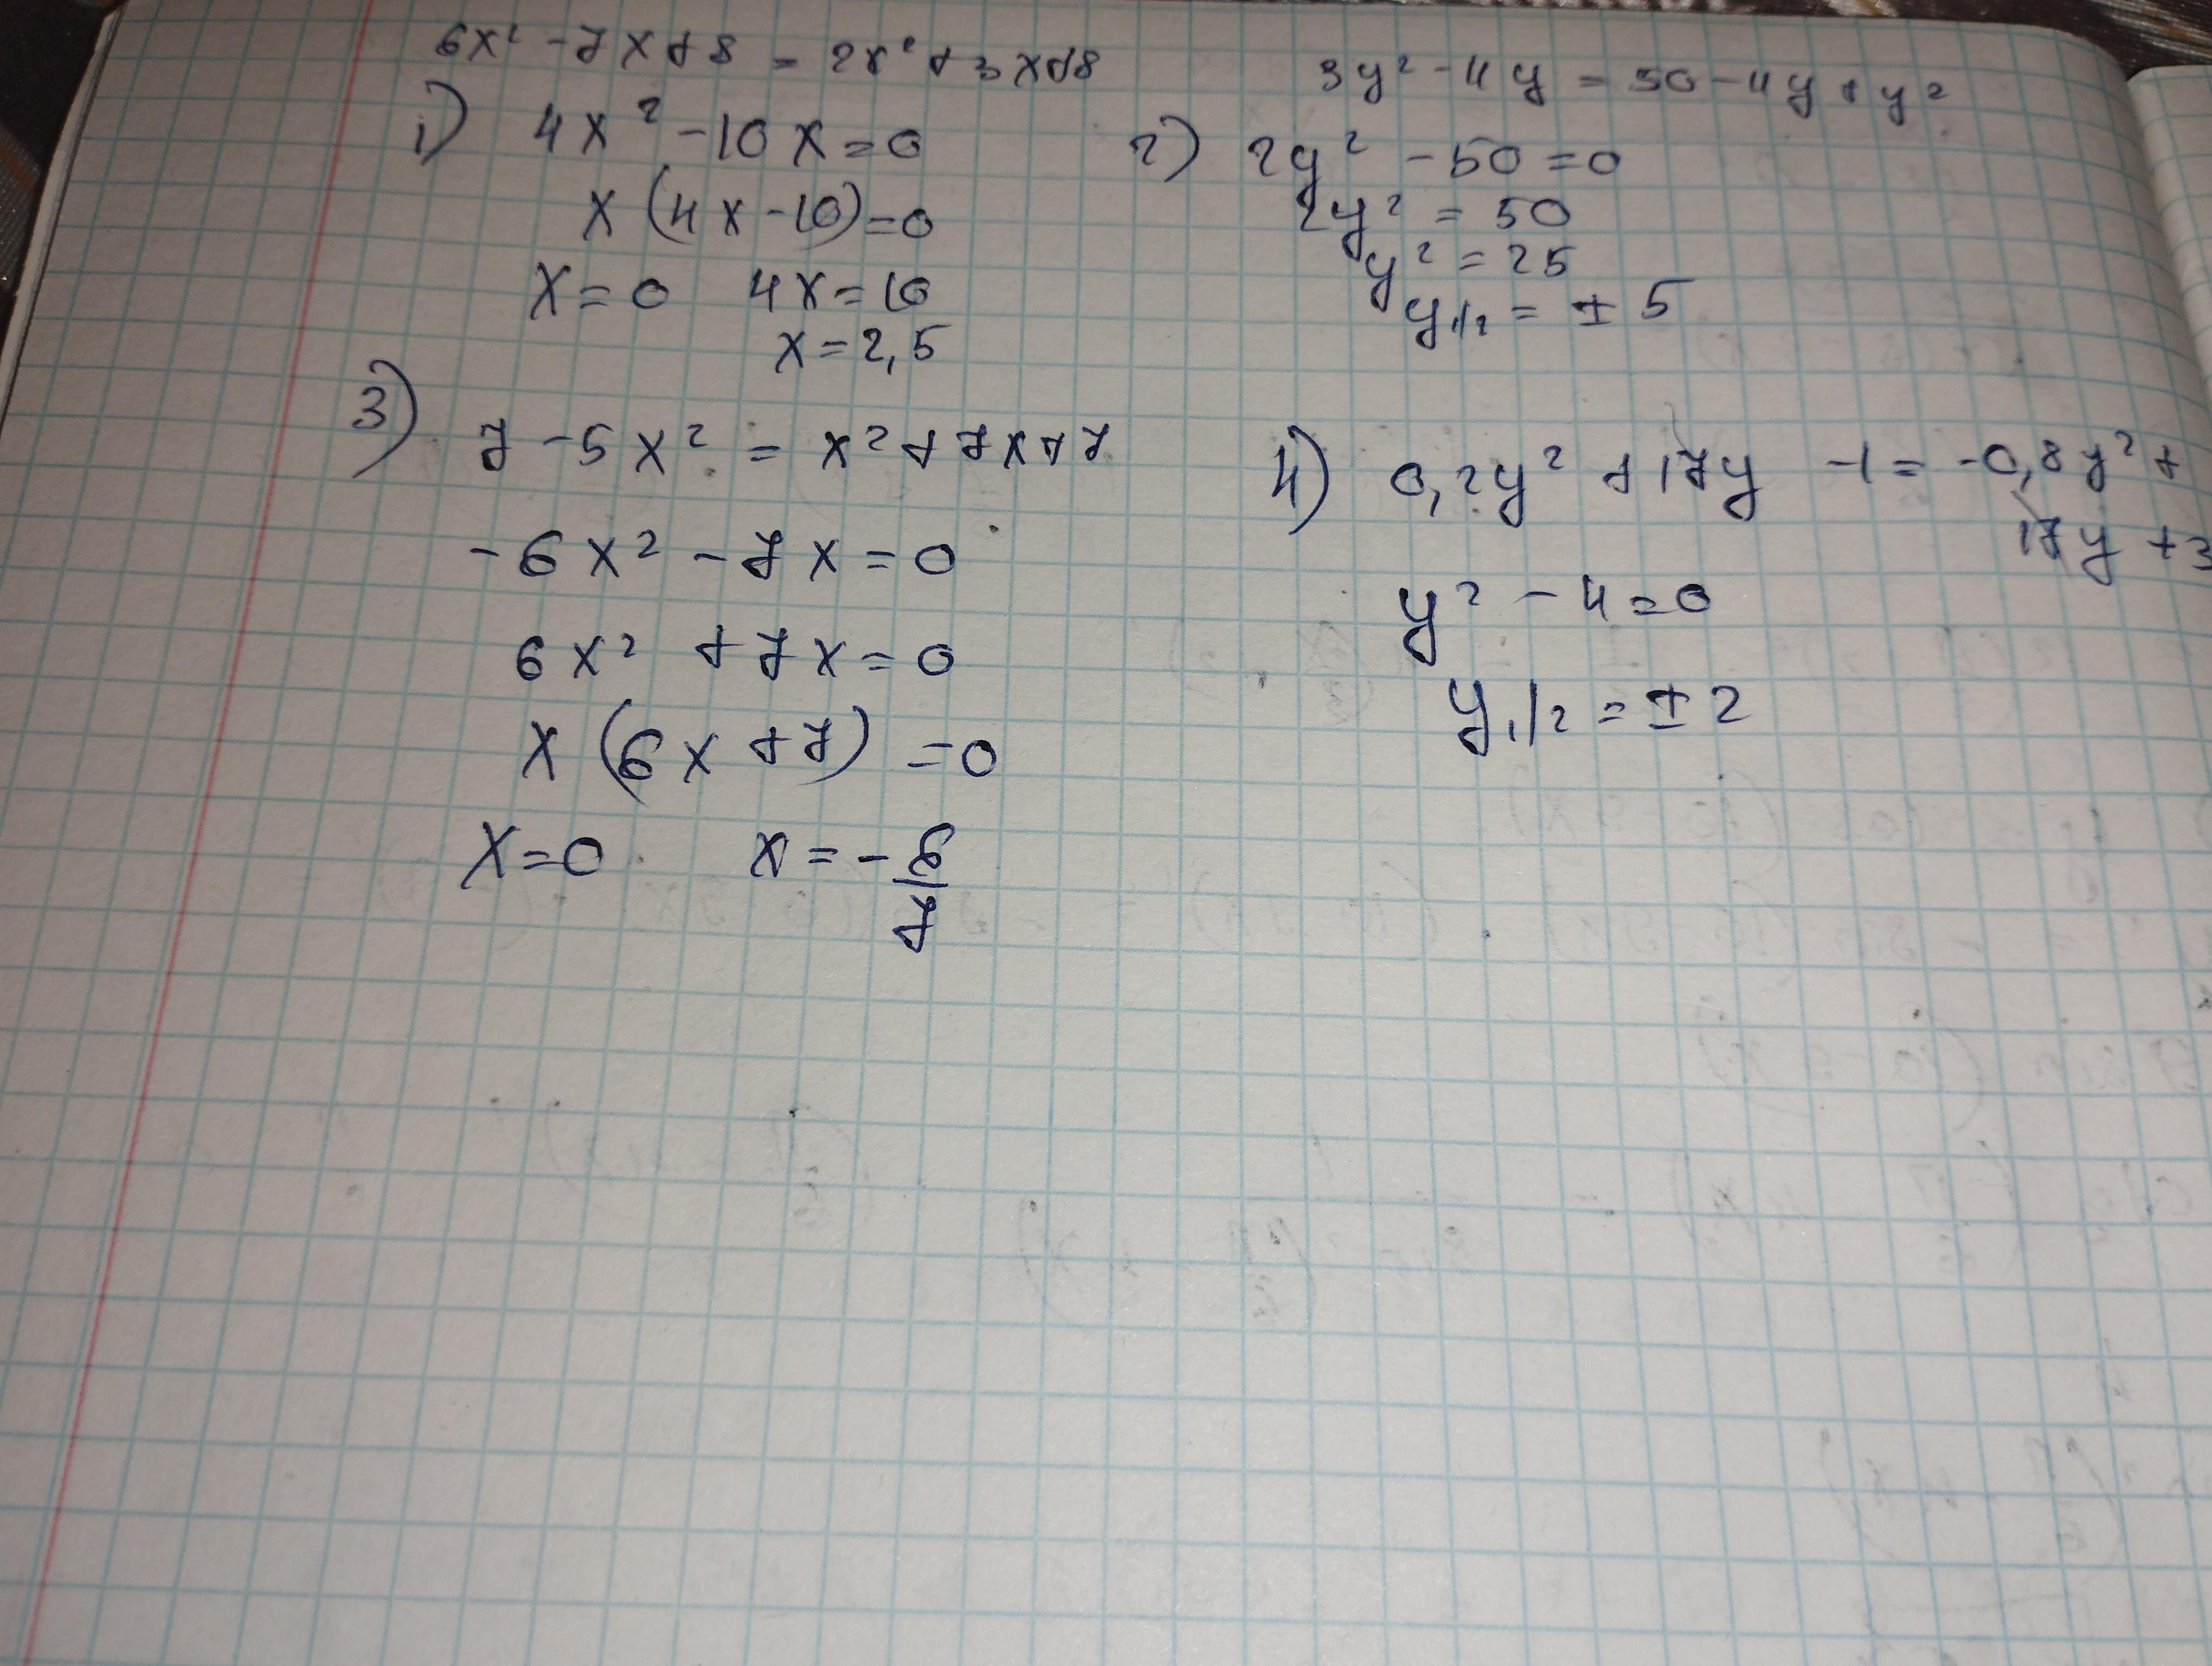 6x² - 7x + 8 = 2x² + 3x + 8
1) 4x² - 10x = 0
x (4x - 10) = 0
x = 0 4x = 10
x = 2,5
3y² - 4y = 50 - 4y + y²
2) 2y² - 50 = 0
2y² = 50
y² = 25
y₁/₂ = ± 5
3) 7 - 5x² = x² + 7x + 7
- 6x² - 7x = 0
6x² + 7x = 0
x (6x + 7) = 0
x = 0 x = - 6/7
4) 0,2y² + 17y - 1 = -0,8y² +
17y + 3
y² - 4 = 0
y₁/₂ = ± 2